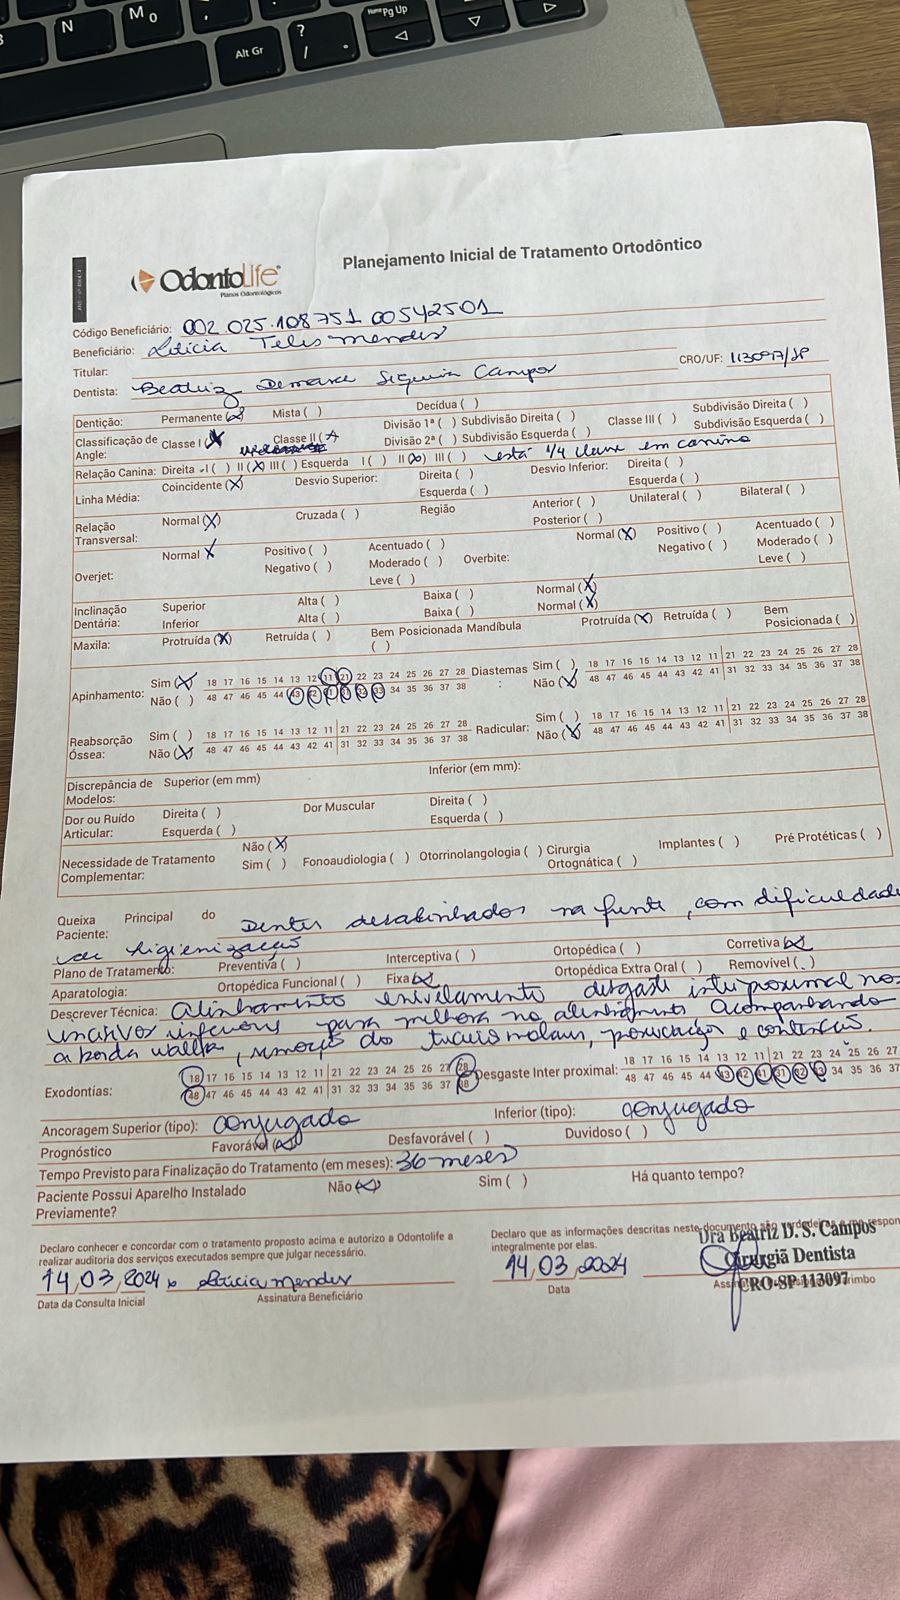 N
M
Alt Gr
?
/
Home
Pg Up
OdontoLife
Planos Odontológicos
Planejamento Inicial de Tratamento Ortodôntico
Código Beneficiário: 002.025.108751 00542501
Beneficiário: Leticia Teles Mendes
Titular:
Dentista: Beatriz Siqueira Campos CRO/UF: 113097/SP
Dentição: Permanente (X) Mista ( ) Decídua ( )
Classificação de Angle: Classe I (X) Classe II (X) Divisão 1ª ( ) Subdivisão Direita ( ) Classe III ( ) Subdivisão Direita ( )
Divisão 2ª ( ) Subdivisão Esquerda ( ) Subdivisão Esquerda ( )
Relação Canina: Direita I ( ) II (X) III ( ) Esquerda I ( ) II (X) III ( ) está 1/4 classe em canino
Linha Média: Coincidente (X) Desvio Superior: Direita ( ) Desvio Inferior: Direita ( )
Esquerda ( ) Esquerda ( )
Relação Transversal: Normal (X) Cruzada ( ) Região Anterior ( ) Unilateral ( ) Bilateral ( )
Posterior ( )
Overjet: Normal X Positivo ( ) Acentuado ( ) Overbite: Normal (X) Positivo ( ) Acentuado ( )
Negativo ( ) Moderado ( ) Negativo ( ) Moderado ( )
Leve ( ) Leve ( )
Inclinação Dentária: Superior Alta ( ) Baixa ( ) Normal (X)
Inferior Alta ( ) Baixa ( ) Normal (X)
Maxila: Protruída (X) Retruída ( ) Bem Posicionada ( ) Mandíbula Protruída (X) Retruída ( ) Bem Posicionada ( )
Apinhamento: Sim (X) 18 17 16 15 14 13 12 11 21 22 23 24 25 26 27 28 Diastemas: Sim ( ) 18 17 16 15 14 13 12 11 21 22 23 24 25 26 27 28
Não ( ) 48 47 46 45 44 43 42 41 31 32 33 34 35 36 37 38 Não (X) 48 47 46 45 44 43 42 41 31 32 33 34 35 36 37 38
Reabsorção Óssea: Sim ( ) 18 17 16 15 14 13 12 11 21 22 23 24 25 26 27 28 Radicular: Sim ( ) 18 17 16 15 14 13 12 11 21 22 23 24 25 26 27 28
Não (X) 48 47 46 45 44 43 42 41 31 32 33 34 35 36 37 38 Não (X) 48 47 46 45 44 43 42 41 31 32 33 34 35 36 37 38
Discrepância de Modelos: Superior (em mm) Inferior (em mm):
Dor ou Ruído Articular: Direita ( ) Dor Muscular Direita ( )
Esquerda ( ) Esquerda ( )
Necessidade de Tratamento Complementar: Não (X)
Sim ( ) Fonoaudiologia ( ) Otorrinolangologia ( ) Cirurgia Ortognática ( ) Implantes ( ) Pré Protéticas ( )
Queixa Principal do Paciente: Dentes desalinhados na frente, com dificuldade
higienização
Plano de Tratamento: Preventiva ( ) Interceptiva ( ) Ortopédica ( ) Corretiva (X)
Aparatologia: Ortopédica Funcional ( ) Fixa (X) Ortopédica Extra Oral ( ) Removível ( )
Descrever Técnica: Alinhamento e nivelamento desgaste interproximal nos
incisivos inferiores para melhora no alinhamento Acompanhando
a borda, remoção dos terceiros molares, e contenção.
Exodontias: 18 17 16 15 14 13 12 11 21 22 23 24 25 26 27 28 Desgaste Inter proximal: 18 17 16 15 14 13 12 11 21 22 23 24 25 26 27
48 47 46 45 44 43 42 41 31 32 33 34 35 36 37 38 48 47 46 45 44 43 42 41 31 32 33 34 35 36 37
Ancoragem Superior (tipo): conjugado Inferior (tipo): conjugado
Prognóstico Favorável (X) Desfavorável ( ) Duvidoso ( )
Tempo Previsto para Finalização do Tratamento (em meses): 36 meses
Paciente Possui Aparelho Instalado Previamente? Não (X) Sim ( ) Há quanto tempo?
Declaro conhecer e concordar com o tratamento proposto acima e autorizo a Odontolife a
realizar auditoria dos serviços executados sempre que julgar necessário.
14,03,2024 x Leticia Mendes
Data da Consulta Inicial Assinatura Beneficiário
Declaro que as informações descritas neste documento são
integralmente por elas.
14,03,2024
Data
Dra Beatriz D. S. Campos
Cirurgiã Dentista
CRO-SP 113097